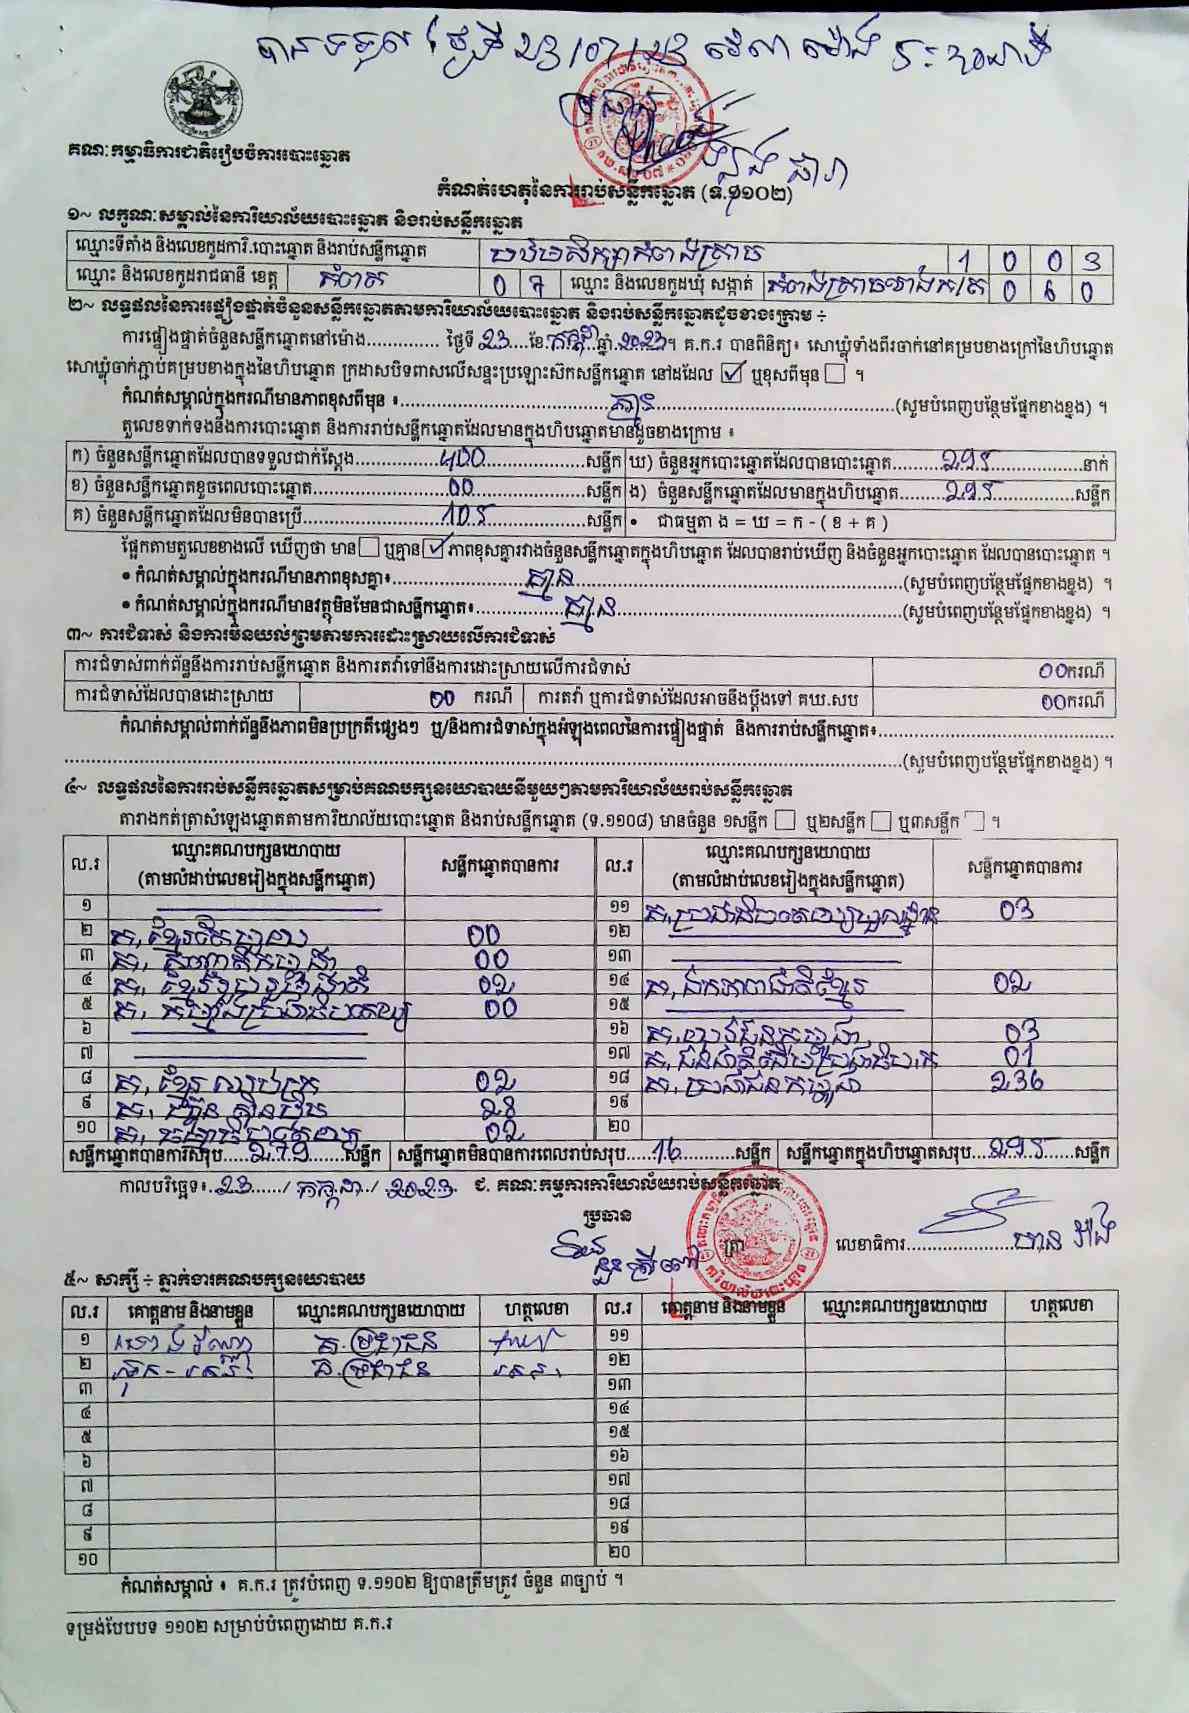 បានទទួល ថ្ងៃទី 23/07/23 វេលា ម៉ោង
គណៈកម្មាធិការជាតិរៀបចំការបោះឆ្នោត
កំណត់ហេតុនៃការរាប់សន្លឹកឆ្នោត (ទ.១១០២)
១~ លក្ខណៈសម្គាល់នៃការិយាល័យបោះឆ្នោត និងរាប់សន្លឹកឆ្នោត
ឈ្មោះទីតាំង និងលេខកូដការិ.បោះឆ្នោត និងរាប់សន្លឹកឆ្នោត 1 0 0 3
ឈ្មោះ និងលេខកូដរាជធានី ខេត្ត កំពត 0 7 ឈ្មោះ និងលេខកូដឃុំ សង្កាត់ 0 6 0
២~ លទ្ធផលនៃការផ្ទៀងផ្ទាត់ចំនួនសន្លឹកឆ្នោតតាមការិយាល័យបោះឆ្នោត និងរាប់សន្លឹកឆ្នោតដូចខាងក្រោម ÷
ការផ្ទៀងផ្ទាត់ចំនួនសន្លឹកឆ្នោតនៅម៉ោង.............. ថ្ងៃទី 23 ខែ កក្កដា ឆ្នាំ 2023 ។ គ.ក.រ បានពិនិត្យ៖ សោឃ្លុំទាំងពីរចាក់នៅគម្របខាងក្រៅនៃហិបឆ្នោត
សោឃ្លុំចាក់ភ្ជាប់គម្របខាងក្នុងនៃហិបឆ្នោត ក្រដាសបិទពាសលើសន្ទះប្រឡោះសឹកសន្លឹកឆ្នោត នៅដដែល ☑ ឬខុសពីមុន ☐ ។
កំណត់សម្គាល់ក្នុងករណីមានភាពខុសពីមុន ៖ គ្មាន (សូមបំពេញបន្ថែមផ្នែកខាងខ្នង) ។
តួលេខទាក់ទងនឹងការបោះឆ្នោត និងការរាប់សន្លឹកឆ្នោតដែលមានក្នុងហិបឆ្នោតមានដូចខាងក្រោម ៖
ក) ចំនួនសន្លឹកឆ្នោតដែលបានទទួលជាក់ស្តែង 400 សន្លឹក ឃ) ចំនួនអ្នកបោះឆ្នោតដែលបានបោះឆ្នោត 295 នាក់
ខ) ចំនួនសន្លឹកឆ្នោតខូចពេលបោះឆ្នោត 00 សន្លឹក ង) ចំនួនសន្លឹកឆ្នោតដែលមានក្នុងហិបឆ្នោត 295 សន្លឹក
គ) ចំនួនសន្លឹកឆ្នោតដែលមិនបានប្រើ 105 សន្លឹក • ជាធម្មតា ង = ឃ = ក - ( ខ + គ )
ផ្អែកតាមតួលេខខាងលើ ឃើញថា មាន ☐ ឬគ្មាន ☑ ភាពខុសគ្នារវាងចំនួនសន្លឹកឆ្នោតក្នុងហិបឆ្នោត ដែលបានរាប់ឃើញ និងចំនួនអ្នកបោះឆ្នោត ដែលបានបោះឆ្នោត ។
• កំណត់សម្គាល់ក្នុងករណីមានភាពខុសគ្នា៖ គ្មាន (សូមបំពេញបន្ថែមផ្នែកខាងខ្នង) ។
• កំណត់សម្គាល់ក្នុងករណីមានវត្ថុមិនមែនជាសន្លឹកឆ្នោត៖ គ្មាន (សូមបំពេញបន្ថែមផ្នែកខាងខ្នង) ។
៣~ ការជំទាស់ និងការមិនយល់ព្រមតាមការដោះស្រាយលើការជំទាស់
ការជំទាស់ពាក់ព័ន្ធនឹងការរាប់សន្លឹកឆ្នោត និងការតវ៉ាទៅនឹងការដោះស្រាយលើការជំទាស់ 00 ករណី
ការជំទាស់ដែលបានដោះស្រាយ 00 ករណី ការតវ៉ា ឬការជំទាស់ដែលអាចនឹងប្តឹងទៅ គឃ.សប 00 ករណី
កំណត់សម្គាល់ពាក់ព័ន្ធនឹងភាពមិនប្រក្រតីផ្សេងៗ ឬ/និងការជំទាស់ក្នុងអំឡុងពេលនៃការផ្ទៀងផ្ទាត់ និងការរាប់សន្លឹកឆ្នោត៖
(សូមបំពេញបន្ថែមផ្នែកខាងខ្នង) ។
៤~ លទ្ធផលនៃការរាប់សន្លឹកឆ្នោតសម្រាប់គណបក្សនយោបាយនីមួយៗតាមការិយាល័យរាប់សន្លឹកឆ្នោត
តារាងកត់ត្រាសំឡេងឆ្នោតតាមការិយាល័យបោះឆ្នោត និងរាប់សន្លឹកឆ្នោត (ទ.១១០៨) មានចំនួន ១សន្លឹក ☐ ឬ២សន្លឹក ☐ ឬ៣សន្លឹក ☐ ។
ល.រ ឈ្មោះគណបក្សនយោបាយ (តាមលំដាប់លេខរៀងក្នុងសន្លឹកឆ្នោត) សន្លឹកឆ្នោតបានការ ល.រ ឈ្មោះគណបក្សនយោបាយ (តាមលំដាប់លេខរៀងក្នុងសន្លឹកឆ្នោត) សន្លឹកឆ្នោតបានការ
១ ១១ 03
២ 00 ១២
៣ 00 ១៣
៤ គ. ខ្មែររួបរួមជាតិ 02 ១៤ គ. ឯកភាពជាតិខ្មែរ 02
៥ 00 ១៥
៦ ១៦ គ. យុវជនកម្ពុជា 03
៧ ១៧ 01
៨ គ. ខ្មែរឈប់ក្រ 02 ១៨ គ. ប្រជាជនកម្ពុជា 236
៩ គ. ហ៊្វុនស៊ិនប៉ិច 28 ១៩
១០ 02 ២០
សន្លឹកឆ្នោតបានការសរុប 279 សន្លឹក សន្លឹកឆ្នោតមិនបានការពេលរាប់សរុប 16 សន្លឹក សន្លឹកឆ្នោតក្នុងហិបឆ្នោតសរុប 295 សន្លឹក
កាលបរិច្ឆេទ៖ 23 / កក្កដា / 2023 ជ. គណៈកម្មការការិយាល័យរាប់សន្លឹកឆ្នោត
ប្រធាន
ត្រា លេខាធិការ
៥~ សាក្សី ÷ ភ្នាក់ងារគណបក្សនយោបាយ
ល.រ គោត្តនាម និងនាមខ្លួន ឈ្មោះគណបក្សនយោបាយ ហត្ថលេខា ល.រ គោត្តនាម និងនាមខ្លួន ឈ្មោះគណបក្សនយោបាយ ហត្ថលេខា
១ គ.ប្រជាជន ១១
២ គ.ប្រជាជន ១២
៣ ១៣
៤ ១៤
៥ ១៥
៦ ១៦
៧ ១៧
៨ ១៨
៩ ១៩
១០ ២០
កំណត់សម្គាល់ ៖ គ.ក.រ ត្រូវបំពេញ ទ.១១០២ ឱ្យបានត្រឹមត្រូវ ចំនួន ៣ច្បាប់ ។
ទម្រង់បែបបទ ១១០២ សម្រាប់បំពេញដោយ គ.ក.រ